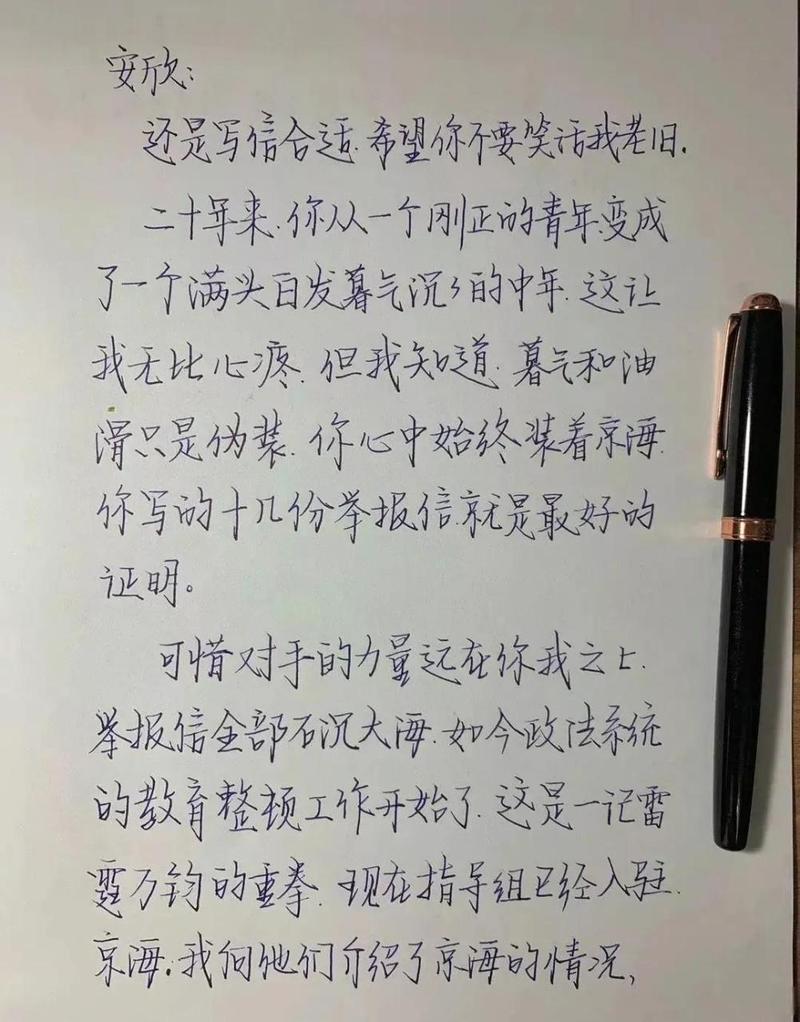 安欣:
还是写信合适.希望你不要笑话我老旧.
二十年来.你从一个刚正的青年.变成
了一个满头白发暮气沉々的中年.这让
我无比心疼.但我知道.暮气和油
滑只是伪装.你心中始终装着京海.
你写的十几份举报信.就是最好的
证明。
可惜对手的力量远在你我之上.
举报信全部石沉大海.如今政法系统
的教育整顿工作开始了.这是一记雷
霆万钧的重拳.现在指导组已经入驻.
京海.我向他们介绍了京海的情况,